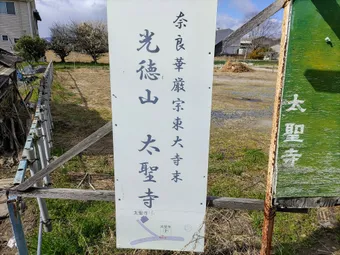 奈良華厳宗東大寺末
光徳山 太聖寺
太聖寺